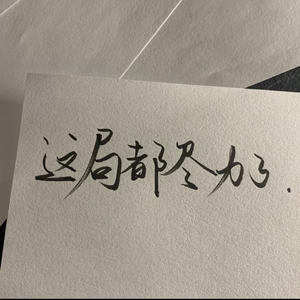 这局都尽力了.